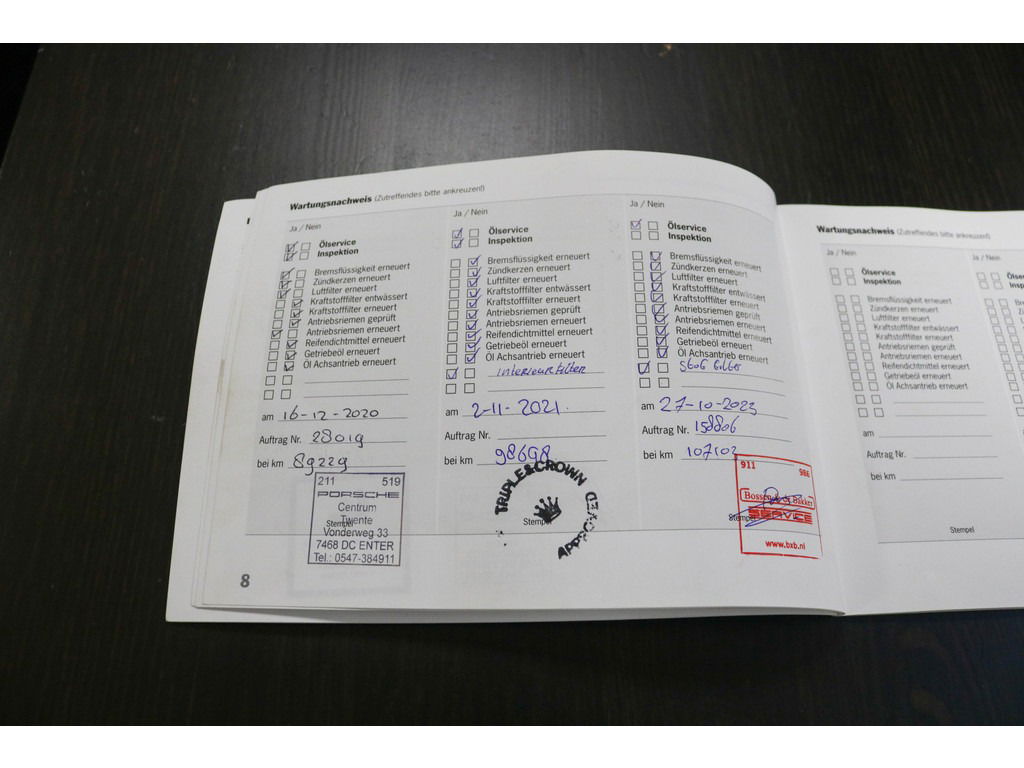 Wartungsnachweis (Zutreffendes bitte ankreuzen!)
Ja / Nein
Ölservice
Inspektion
Bremsflüssigkeit erneuert
Zündkerzen erneuert
Luftfilter erneuert
Kraftstofffilter entwässert
Kraftstofffilter erneuert
Antriebsriemen geprüft
Antriebsriemen erneuert
Reifendichtmittel erneuert
Getriebeöl erneuert
Öl Achsantrieb erneuert
am 16-12-2020
Auftrag Nr. 28019
bei km 89229
211 519
PORSCHE
Centrum
Twente
Stempel
Vonderweg 33
7468 DC ENTER
Tel.: 0547-384911
8
Ja / Nein
Ölservice
Inspektion
Bremsflüssigkeit erneuert
Zündkerzen erneuert
Luftfilter erneuert
Kraftstofffilter entwässert
Kraftstofffilter erneuert
Antriebsriemen geprüft
Antriebsriemen erneuert
Reifendichtmittel erneuert
Getriebeöl erneuert
Öl Achsantrieb erneuert
interieurfilter
am 2-11-2021.
Auftrag Nr.
bei km 98698
TRIPLE&CROWN
APPROVED
Stempel
Ja / Nein
Ölservice
Inspektion
Bremsflüssigkeit erneuert
Zündkerzen erneuert
Luftfilter erneuert
Kraftstofffilter entwässert
Kraftstofffilter erneuert
Antriebsriemen geprüft
Antriebsriemen erneuert
Reifendichtmittel erneuert
Getriebeöl erneuert
Öl Achsantrieb erneuert
Stof filter
am 27-10-2023
Auftrag Nr. 158806
bei km 107102
911 986
Stempel
SERVICE
www.bxb.nl
Wartungsnachweis (Zutreffendes bitte ankreuzen!)
Ja / Nein
Ölservice
Inspektion
Bremsflüssigkeit erneuert
Zündkerzen erneuert
Luftfilter erneuert
Kraftstofffilter entwässert
Kraftstofffilter erneuert
Antriebsriemen geprüft
Antriebsriemen erneuert
Reifendichtmittel erneuert
Getriebeöl erneuert
Öl Achsantrieb erneuert
am
Auftrag Nr.
bei km
Stempel
Ja / Nein